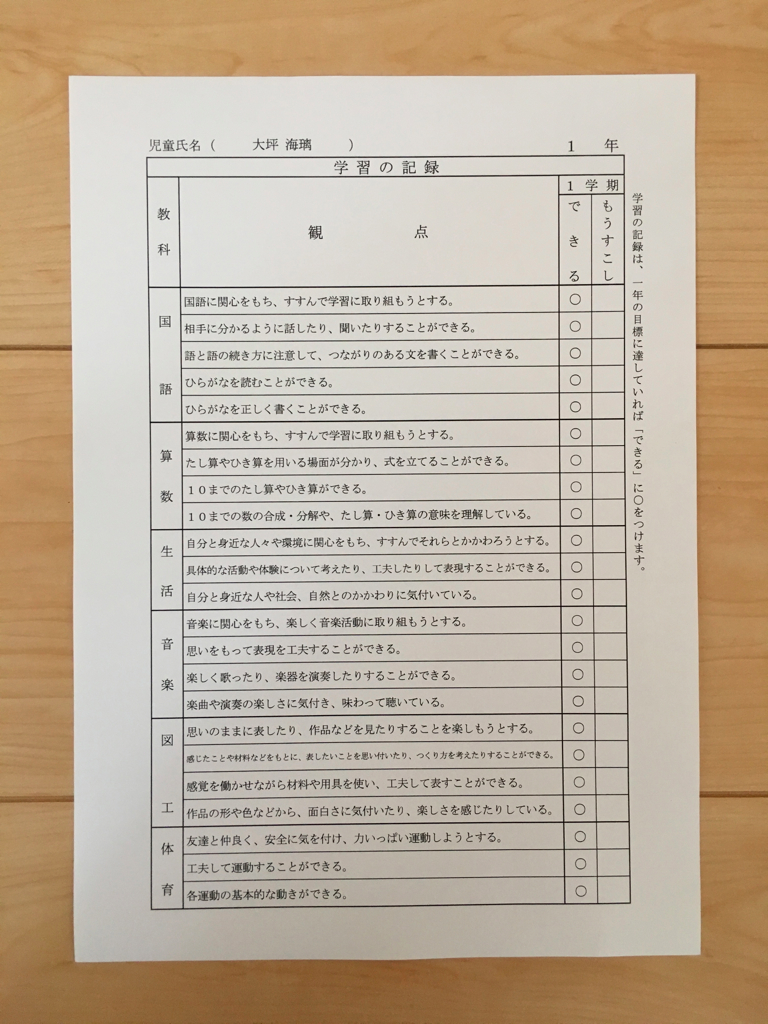 児童氏名（　　大坪 海璃　　）　　1　年
学習の記録
教科　観点　1学期
できる　もうすこし
国語
国語に関心をもち、すすんで学習に取り組もうとする。　○
相手に分かるように話したり、聞いたりすることができる。　○
語と語の続き方に注意して、つながりのある文を書くことができる。　○
ひらがなを読むことができる。　○
ひらがなを正しく書くことができる。　○
算数
算数に関心をもち、すすんで学習に取り組もうとする。　○
たし算やひき算を用いる場面が分かり、式を立てることができる。　○
１０までのたし算やひき算ができる。　○
１０までの数の合成・分解や、たし算・ひき算の意味を理解している。　○
生活
自分と身近な人々や環境に関心をもち、すすんでそれらとかかわろうとする。　○
具体的な活動や体験について考えたり、工夫したりして表現することができる。　○
自分と身近な人や社会、自然とのかかわりに気付いている。　○
音楽
音楽に関心をもち、楽しく音楽活動に取り組もうとする。　○
思いをもって表現を工夫することができる。　○
楽しく歌ったり、楽器を演奏したりすることができる。　○
楽曲や演奏の楽しさに気付き、味わって聴いている。　○
図工
思いのままに表したり、作品などを見たりすることを楽しもうとする。　○
感じたことや材料などをもとに、表したいことを思い付いたり、つくり方を考えたりすることができる。　○
感覚を働かせながら材料や用具を使い、工夫して表すことができる。　○
作品の形や色などから、面白さに気付いたり、楽しさを感じたりしている。　○
体育
友達と仲良く、安全に気を付け、力いっぱい運動しようとする。　○
工夫して運動することができる。　○
各運動の基本的な動きができる。　○
学習の記録は、一年の目標に達していれば「できる」に○をつけます。